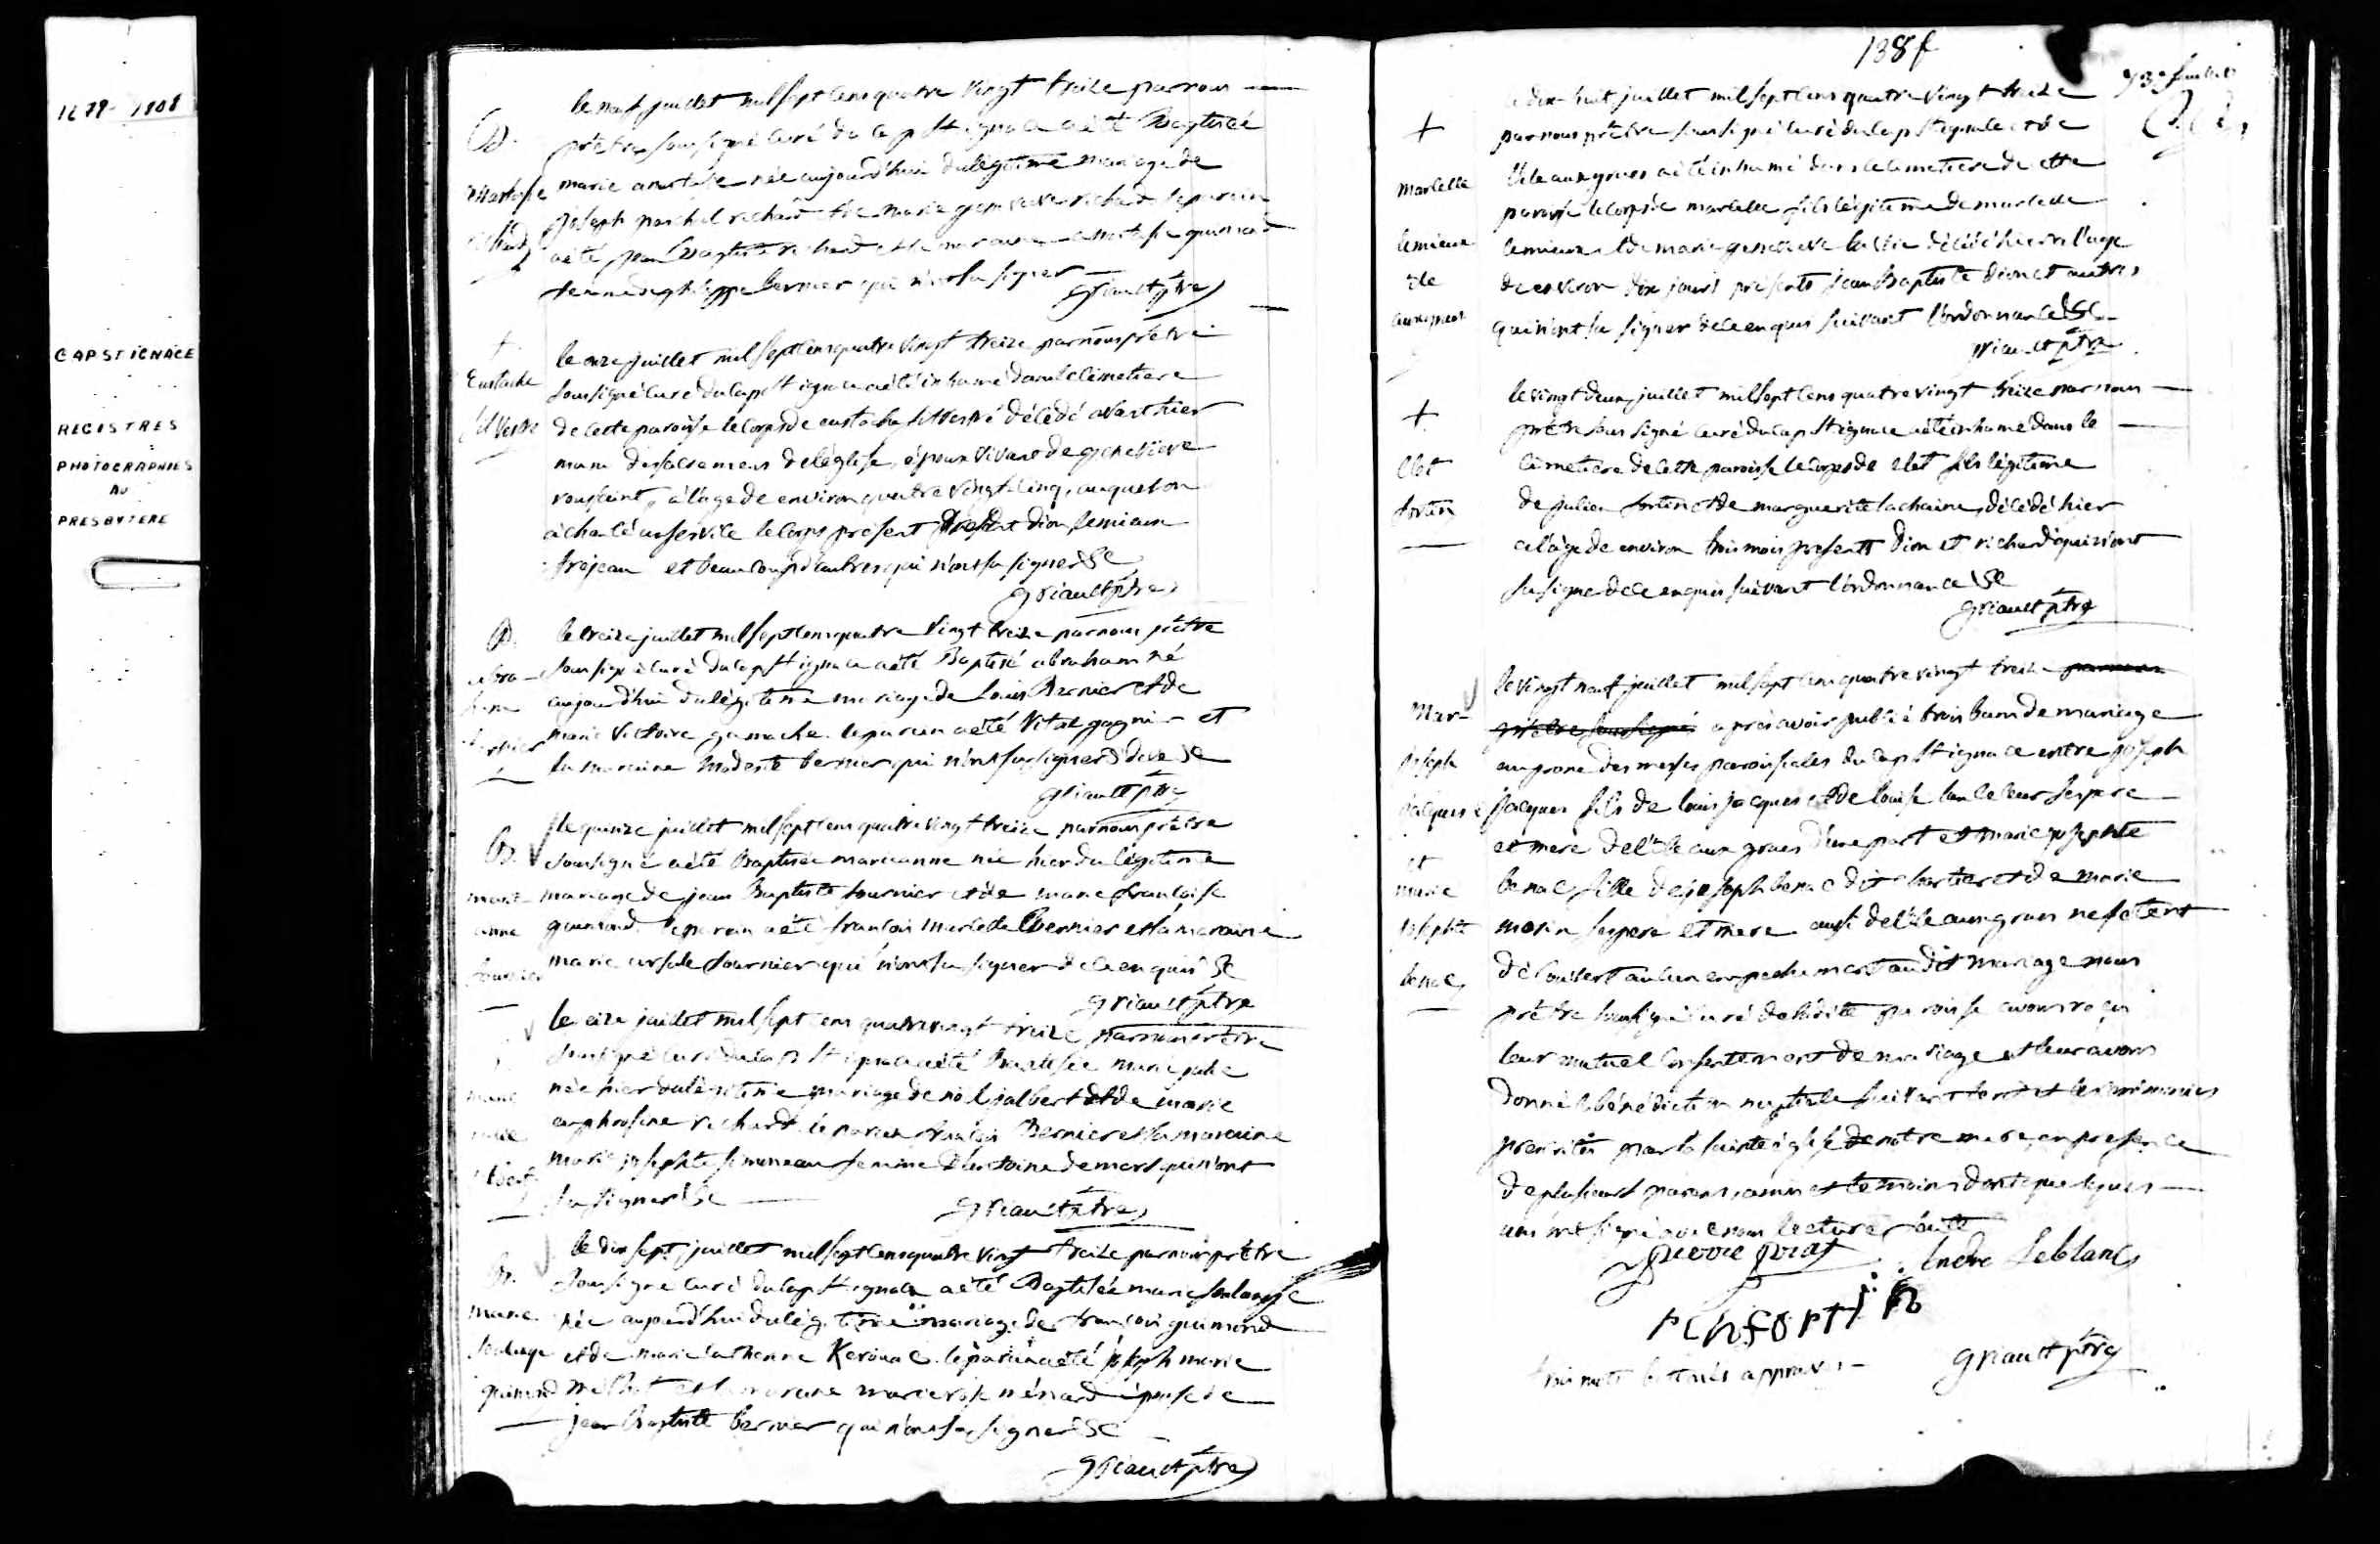 1679-1908
CAP ST IGNACE
REGISTRES
PHOTOGRAPHIES
AU
PRESBYTERE
le neuf juillet mil sept cens quatre vingt treize par nous
B. prêtre sousigné curé du cap st ignace a été Baptisée
marie anastasie née aujourd'hui du légitime mariage de
joseph paschal richard et de marie genevieve richard le parain
richard a été jean Baptiste richard et la maraine anastasie guimond
femme de philippe bernier qui n'ont su signer
griault ptre
+
le onze juillet mil sept cens quatre vingt treize par nous prêtre
Eustache sousigné curé du cap st ignace a été inhumé dans le cimetiere
silvestre de cette paroisse le corps de eustache silvestre décédé avant hier
muni des sacremens de l'église, époux vivant de genevieve
toussaint, à l'age de environ quatre vingt cinq, auquel on
a chanté un service le corps présent présent dion lemieux
frejeau et beaucoup d'autres qui n'ont su signer &c
griault ptre
B. le treize juillet mil sept cens quatre vingt treize par nous prêtre
abra- sousigné curé du cap st ignace a été Baptisé abraham né
ham aujourd'hui du légitime mariage de louis Bernier et de
bernier marie victoire gamache le parain a été vital gagné et
la maraine modeste bernier qui n'ont su signer &c
griault ptre
B. le quinze juillet mil sept cens quatre vingt treize par nous prêtre
sousigné a été Baptisée marianne née hier du légitime
marie mariage de jean Baptiste fournier et de marie françoise
anne guimond le parain a été françois marcelle Bernier et la maraine
fournier marie ursule fournier qui n'ont su signer de ce enquis &c
griault ptre
le seize juillet mil sept cens quatre vingt treize par nous prêtre
sousigné curé du cap st ignace a été Baptisée marie julie
marie née hier du légitime mariage de noel jalbert et de marie
euphrosine richard le parain françois Bernier et la maraine
marie josephte simoneau femme d'antoine demers qui n'ont
su signer &c
griault ptre
le dix sept juillet mil sept cens quatre vingt treize par nous prêtre
B. sousigné curé du cap st ignace a été Baptisée marie soulange
marie née aujourd'hui du légitime mariage de françois guimond
soulange et de marie catherine Kerouac le parain a été joseph marie
guimond et la maraine marie rose ménard épouse de
jean Baptiste bernier qui n'ont su signer &c
griault ptre
138 f
le dix huit juillet mil sept cens quatre vingt treize
+ par nous prêtre sousigné curé du cap st ignace et de
marcelle l'ile aux grues a été inhumé dans le cimetiere de cette
paroisse le corps de marcelle fils légitime de marcelle
lemieux lemieux et de marie genevieve décédé hier a l'age
ile de environ dix jours présents jean Baptiste dion et autres
aux grues qui n'ont su signer de ce enquis suivant l'ordonnance &c
griault ptre
le vingt deux juillet mil sept cens quatre vingt treize par nous
+ prêtre sous signé curé du cap st ignace a été inhumé dans le
clet cimetiere de cette paroisse le corps de clet fils légitime
fortin de julien fortin et de marguerite lachaine, décédé hier
a l'age de environ trois mois presents dion et richard qui n'ont
su signer de ce enquis suivant l'ordonnance &c
griault ptre
le vingt neuf juillet mil sept cens quatre vingt treize par nous
Mar- prêtre sousigné apres avoir publié trois bans de mariage
joseph au prone des messes paroissiales du cap st ignace entre joseph
jacques jacques fils de louis jacques et de louise ses pere
et et mere de l'ile aux grues d'une part et marie josephte
marie benac fille de joseph benac dit chartier et de marie
josephte morin ses pere et mere aussi de l'ile aux grues ne s'etent
benac découvert aucun empechement au dit mariage nous
prêtre sousigné curé de la dite paroisse avons reçu
leur mutuel consentement de mariage et leur avons
donné la bénédiction nuptiale suivant les cérémonies
prescrites par la sainte église de notre mere, en presence
de plusieurs parens, amis et temoins dont quelques
uns ont signé avec nous lecture faite
pierre André Leblanc
trois mots batonés approuvés griault ptre